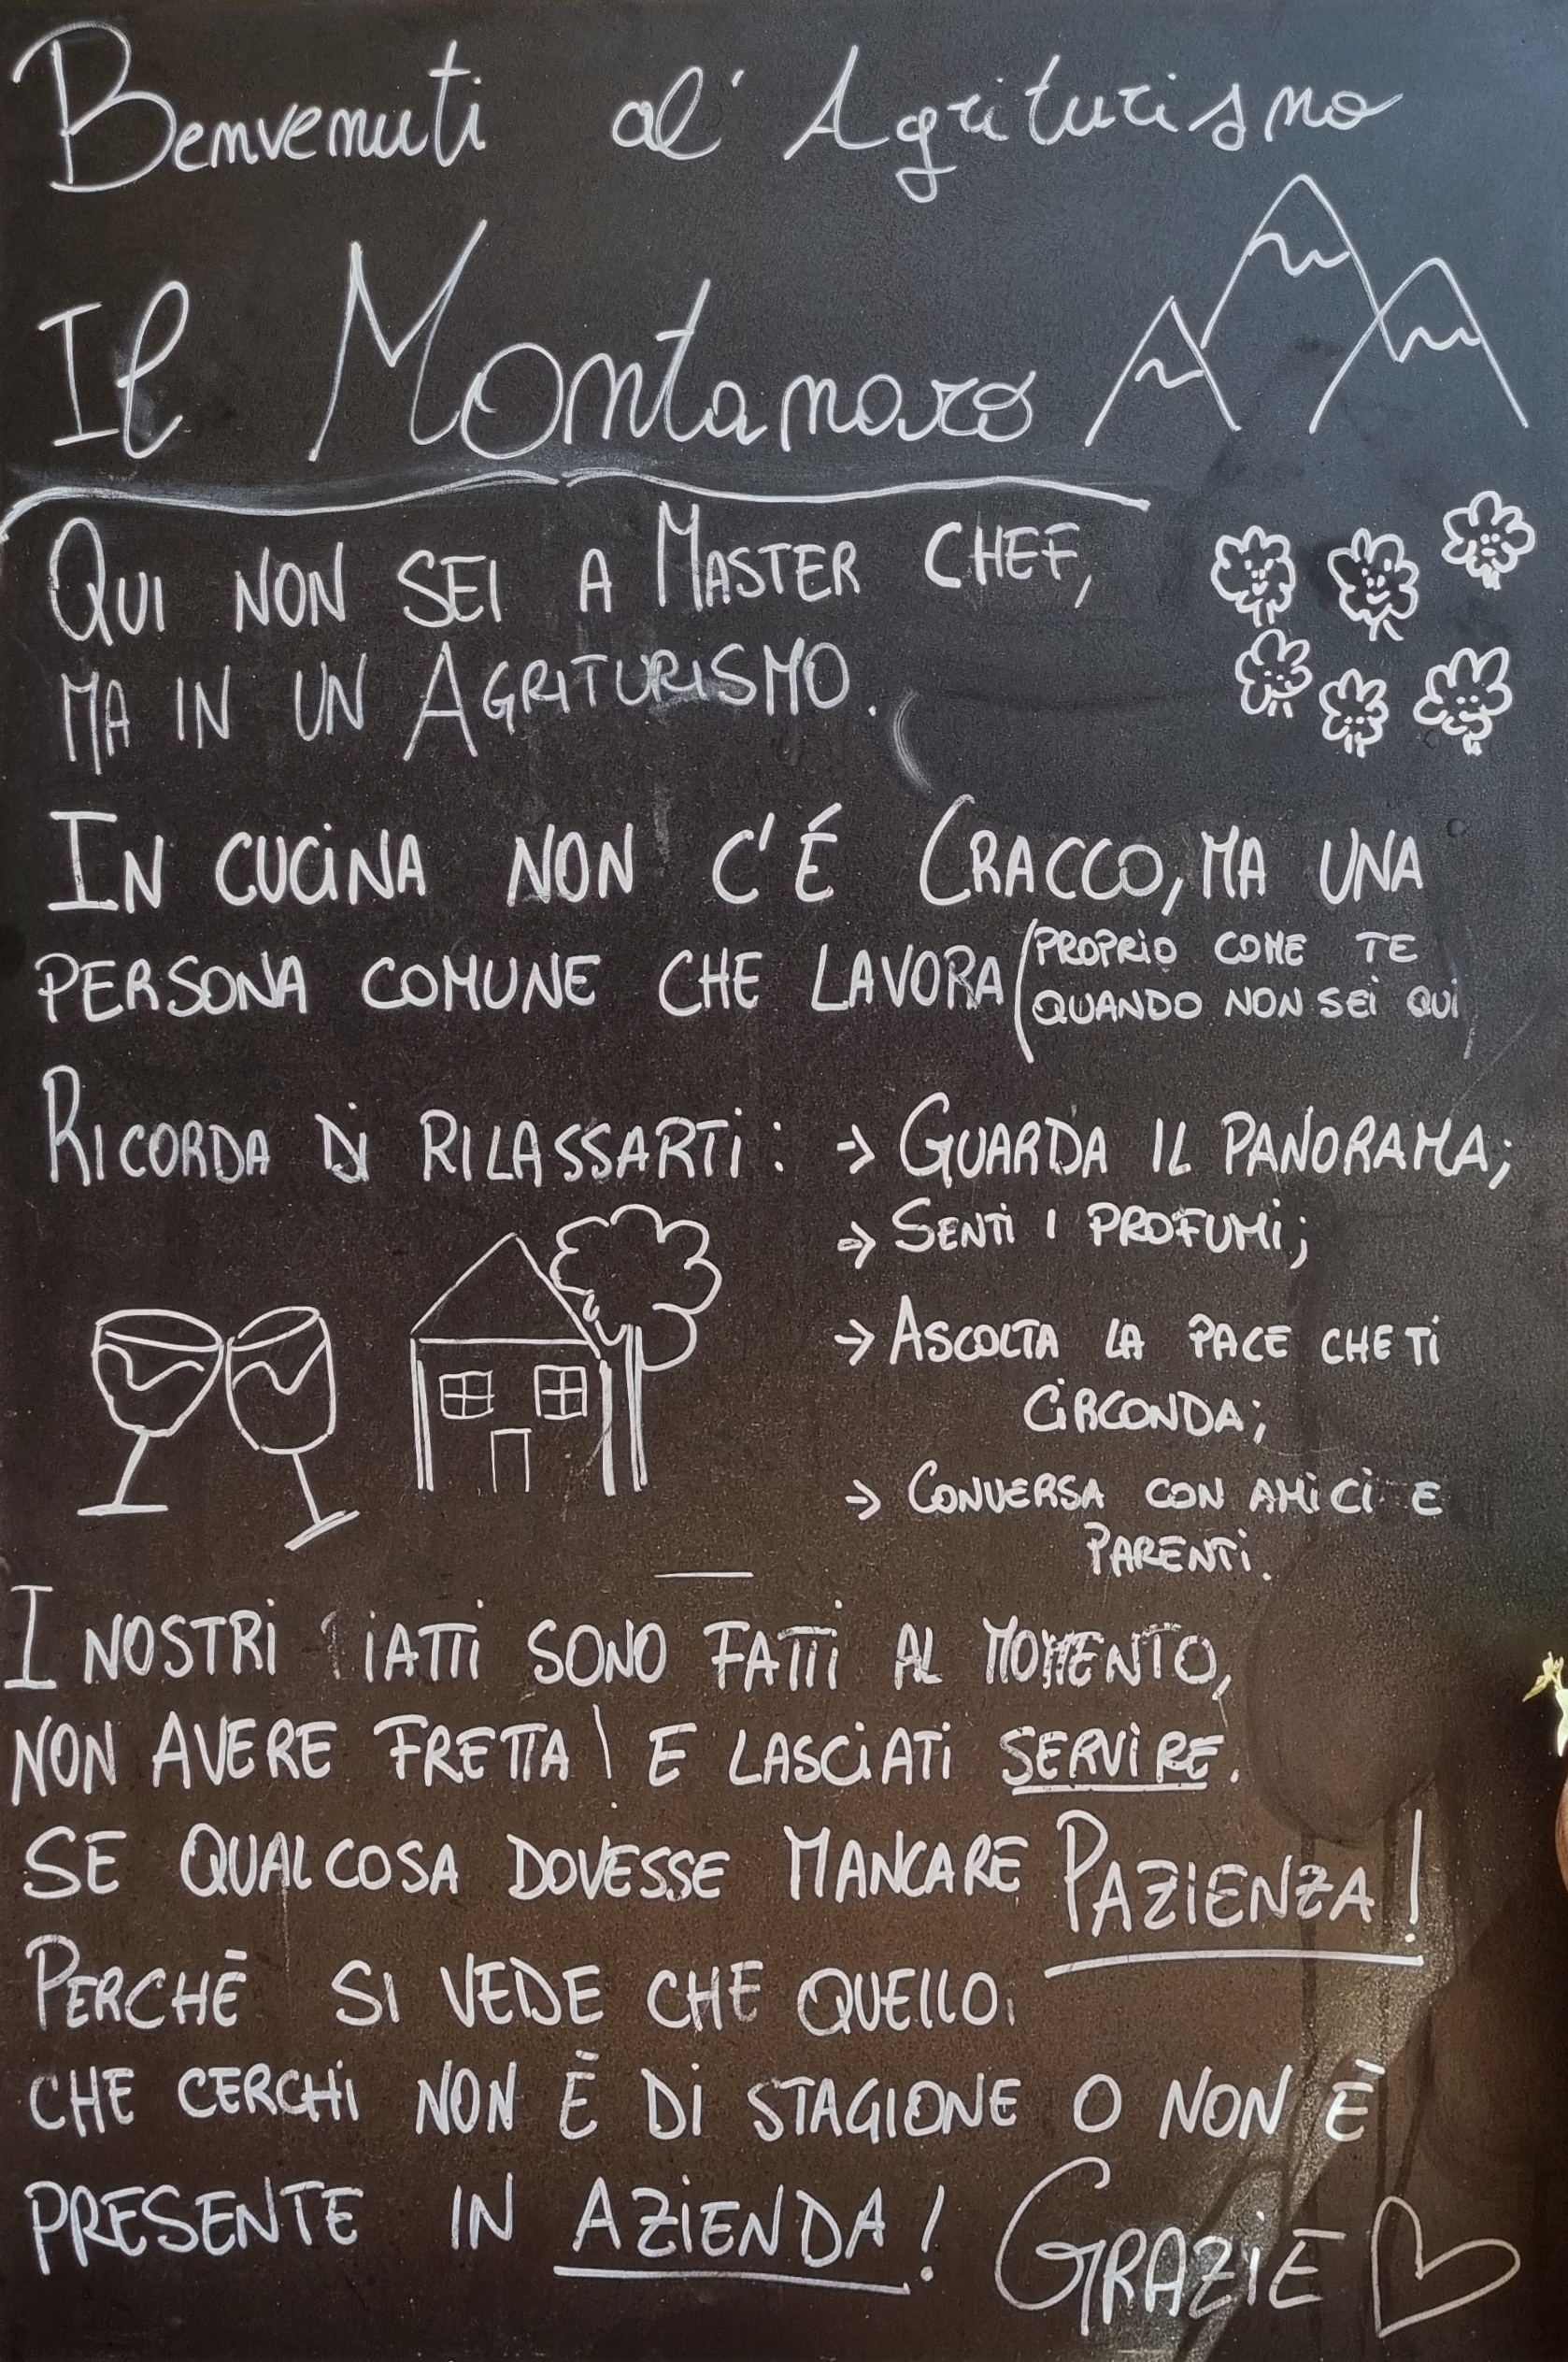 Benvenuti al' Agriturismo
Il Montanaro
QUI NON SEI A MASTER CHEF,
MA IN UN AGRITURISMO.
IN CUCINA NON C'É CRACCO, MA UNA
PERSONA COMUNE CHE LAVORA (PROPRIO COME TE
QUANDO NON SEI QUI)
RICORDA DI RILASSARTI: → GUARDA IL PANORAMA;
→ SENTI I PROFUMI;
→ ASCOLTA LA PACE CHE TI
CIRCONDA;
→ CONVERSA CON AMICI E
PARENTI.
I NOSTRI PIATTI SONO FATTI AL MOMENTO,
NON AVERE FRETTA! E LASCIATI SERVIRE.
SE QUALCOSA DOVESSE MANCARE PAZIENZA!
PERCHÈ SI VEDE CHE QUELLO
CHE CERCHI NON È DI STAGIONE O NON È
PRESENTE IN AZIENDA! GRAZIE